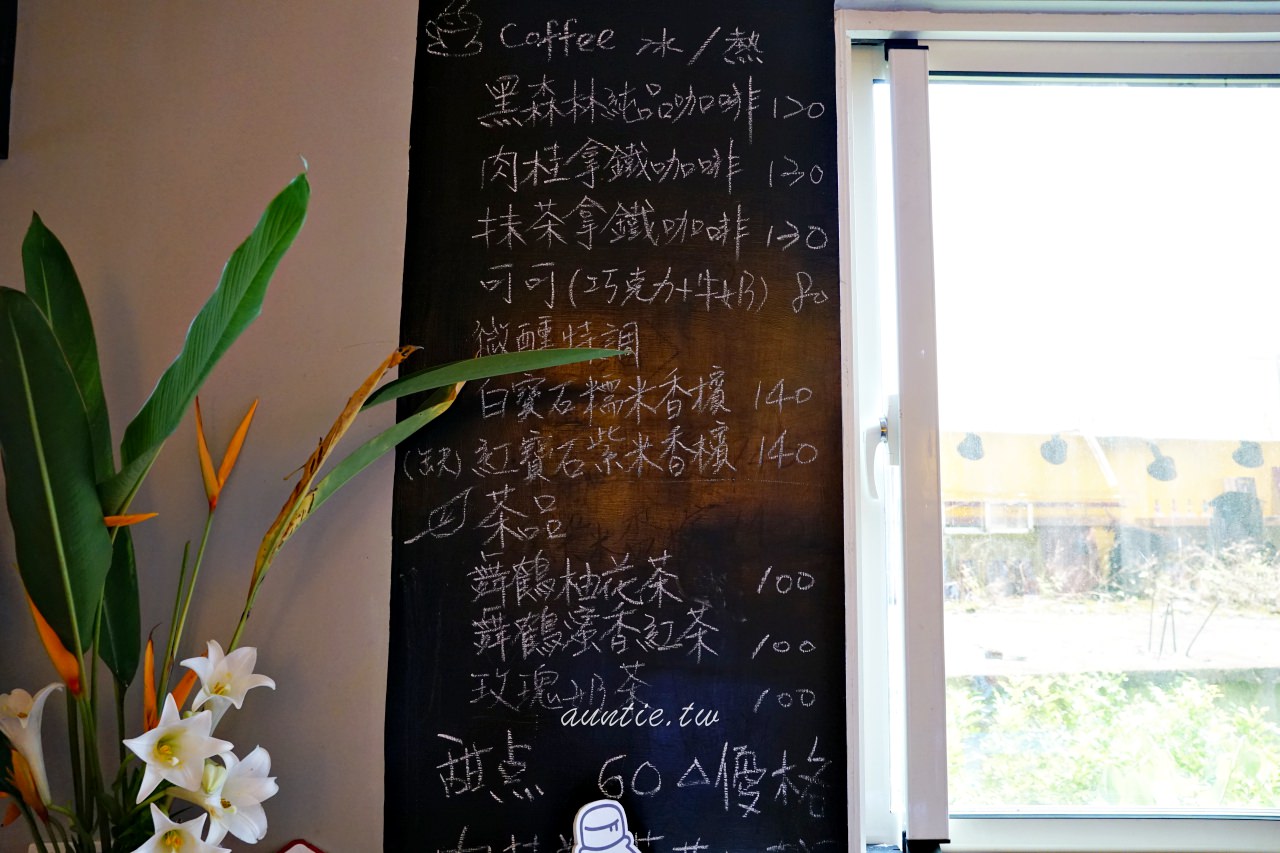 Coffee 冰/熱
黑森林純品咖啡 120
肉桂拿鐵咖啡 130
抹茶拿鐵咖啡 130
可可(巧克力+牛奶) 80
微醺特調
白寶石糯米香檳 140
(缺)紅寶石紫米香檳 140
茶品
舞鶴柚花茶 100
舞鶴蜜香紅茶 100
玫瑰奶茶 100
auntie.tw
甜点 60 △優格